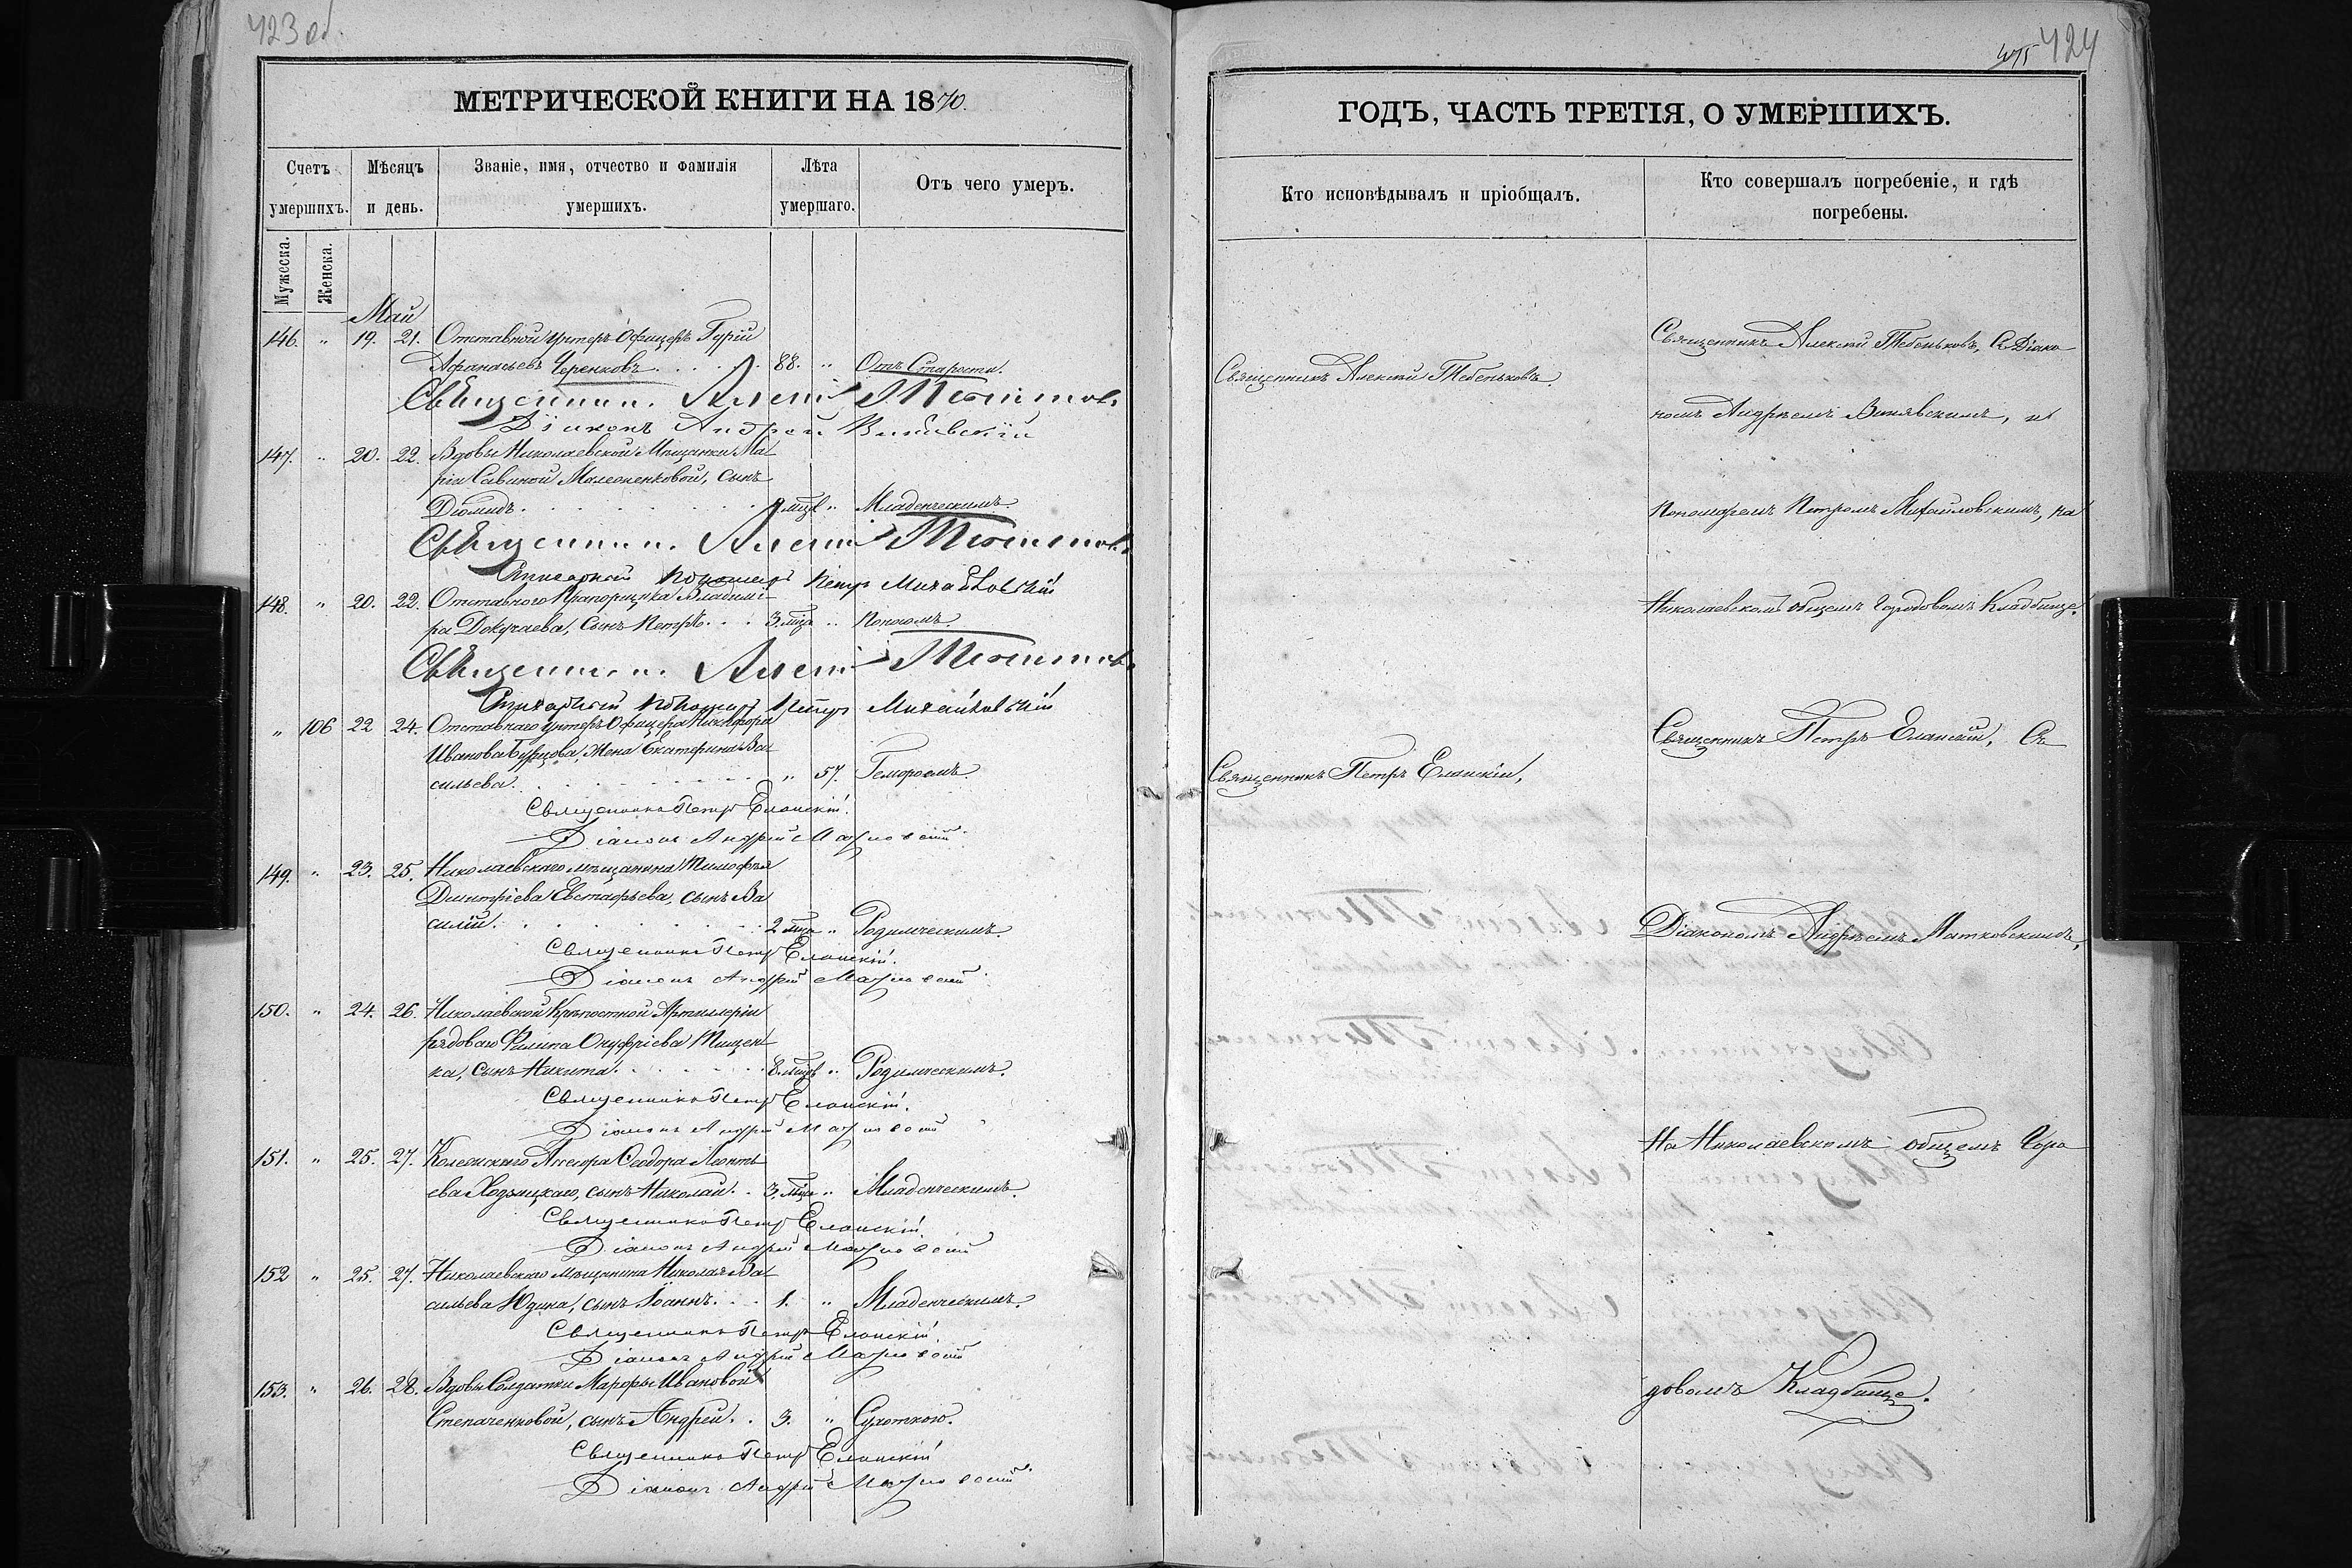 423 об.
МЕТРИЧЕСКОЙ КНИГИ НА 1870.
Счетъ умершихъ.
Мѣсяцъ и день.
Званіе, имя, отчество и фамилія умершихъ.
Лѣта умершаго.
Отъ чего умеръ.
Мужеска.
Женска.
Май
146. " 19. 21. Отставной унтеръ Офицеръ Гурій
Афанасьевъ Черенковъ. 88. " Отъ Старости.
Священникъ Алексій
Діаконъ Андрей
147. " 20. 22. Вдовы Николаевской Мѣщанки Ма
ріи Савиной Малеоненковой, сынъ
Діомидъ. мцв " Младенческимъ.
Священникъ Алексій
Пономарь Петръ Михайловскій
148. " 20. 22. Отставного Прапорщика Владими
ра Докучаева, Сынъ Петръ. 3 мца " Поносомъ.
Священникъ Алексій
Пономарь Петръ Михайловскій
" 106 22 24. Отставнаго унтеръ Офицера Никифора
Иванова Бурцова, Жена Екатерина Ва
сильева. " 57. Гемороемъ.
Священникъ Петръ Еланскій.
Діаконъ Андрей
149. " 23. 25. Николаевскаго мѣщанина Тимофѣя
Димитріева Евстафьева, сынъ Ва
силій. 2 мца " Родимческимъ.
Священникъ Петръ Еланскій.
Діаконъ Андрей
150. " 24. 26. Николаевской Крѣпостной Артиллеріи
рядоваго Филипа Онуфріева Тищен
ка, сынъ Никита. 8 мцвъ " Родимческимъ.
Священникъ Петръ Еланскій.
Діаконъ Андрей
151. " 25. 27. Колежскаго Ассесора Феодора Леонть
ева Ходзицкаго, сынъ Николай. 3 мца " Младенческимъ.
Священникъ Петръ Еланскій.
Діаконъ Андрей
152 " 25. 27. Николаевскаго мѣщанина Николая Ва
сильева Юдина, сынъ Іоаннъ. 1. " Младенческимъ.
Священникъ Петръ Еланскій.
Діаконъ Андрей
153. " 26. 28. Вдовы Солдатки Марфы Ивановой
Степаченковой, сынъ Андрей. 3. " Сухоткою.
Священникъ Петръ Еланскій
Діаконъ Андрей
424
ГОДЪ, ЧАСТЬ ТРЕТІЯ, О УМЕРШИХЪ.
Кто исповѣдывалъ и пріобщалъ.
Кто совершалъ погребеніе, и гдѣ
погребены.
Священникъ Алексій Тебеньковъ.
Священникъ Петръ Еланскій,
Священникъ Алексій Тебеньковъ, Съ Діако
номъ Андреемъ, и
Пономаремъ Петромъ Михайловскимъ, на
Николаевскомъ общемъ городовомъ Кладбище.
Священникъ Петръ Еланскій, Съ
Діакономъ Андреемъ Матковскимъ,
На Николаевскомъ общемъ Горо
довомъ Кладбище.